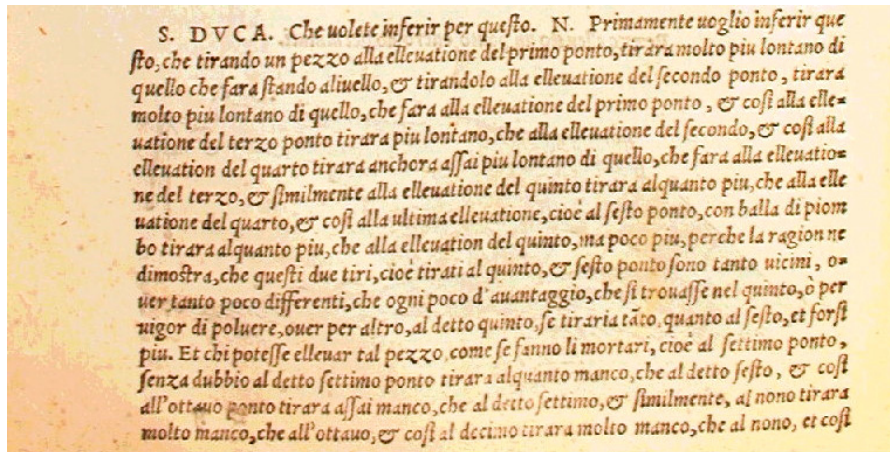 S. DVCA. Che uolete inferir per queſto. N. Primamente uoglio inferir que
ſto, che tirando un pezzo alla elleuatione del primo ponto, tirara molto piu lontano di
quello che fara ſtando aliuello, & tirandolo alla elleuatione del ſecondo ponto, tirara
molto piu lontano di quello, che fara alla elleuatione del primo ponto, & coſi alla elle=
uatione del terzo ponto tirara piu lontano, che alla elleuatione del ſecondo, & coſi alla
elleuation del quarto tirara anchora aſſai piu lontano di quello, che fara alla elleuatio=
ne del terzo, & ſimilmente alla elleuatione del quinto tirara alquanto piu, che alla elle
uatione del quarto, & coſi alla ultima elleuatione, cioè al ſeſto ponto, con balla di piom
bo tirara alquanto piu, che alla elleuation del quinto, ma poco piu, perche la ragion ne
dimoſtra, che queſti due tiri, cioè tirati al quinto, & ſeſto ponto ſono tanto uicini, o=
uer tanto poco differenti, che ogni poco d'auantaggio, che ſi trouaſſe nel quinto, ò per
uigor di poluere, ouer per altro, al detto quinto, ſe tiraria tãto, quanto al ſeſto, et forſi
piu. Et chi poteſſe elleuar tal pezzo, come ſe fanno li mortari, cioè al ſettimo ponto,
ſenza dubbio al detto ſettimo ponto tirara alquanto manco, che al detto ſeſto, & coſi
all'ottauo ponto tirara aſſai manco, che al detto ſettimo, & ſimilmente, al nono tirara
molto manco, che all'ottauo, & coſi al decimo tirara molto manco, che al nono, et coſi